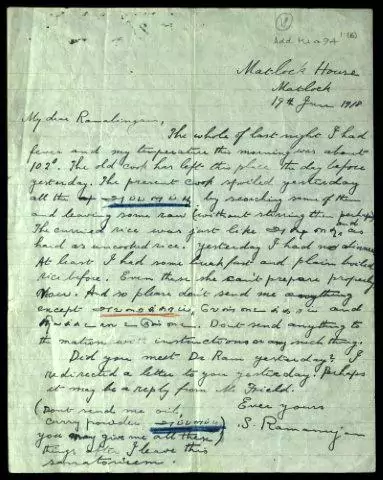 Add Ms a 94
1 (6)
Matlock House
Matlock
19th June 1918
My dear Ramalingam,
The whole of last night I had
fever and my temperature this morning was about
102°. The old cook has left this place the day before
yesterday. The present cook spoiled yesterday
all the by scorching some of them
and leaving some raw (without stirring them perhaps)
The curried rice was just like and
hard as uncooked rice. Yesterday I had no dinner
At least I had some breakfast and plain boiled
rice before. Even these she can't prepare properly
now. And so please don't send me anything
except and
Don't send anything to
the matron with instructions or any such thing.
Did you meet Dr Ram yesterday? I
redirected a letter to you yesterday. Perhaps
it may be a reply from Mr Field.
Ever yours
S. Ramanujan
(Don't send me oil,
curry powder,
you may give me all these
things after I leave this
sanatorium.